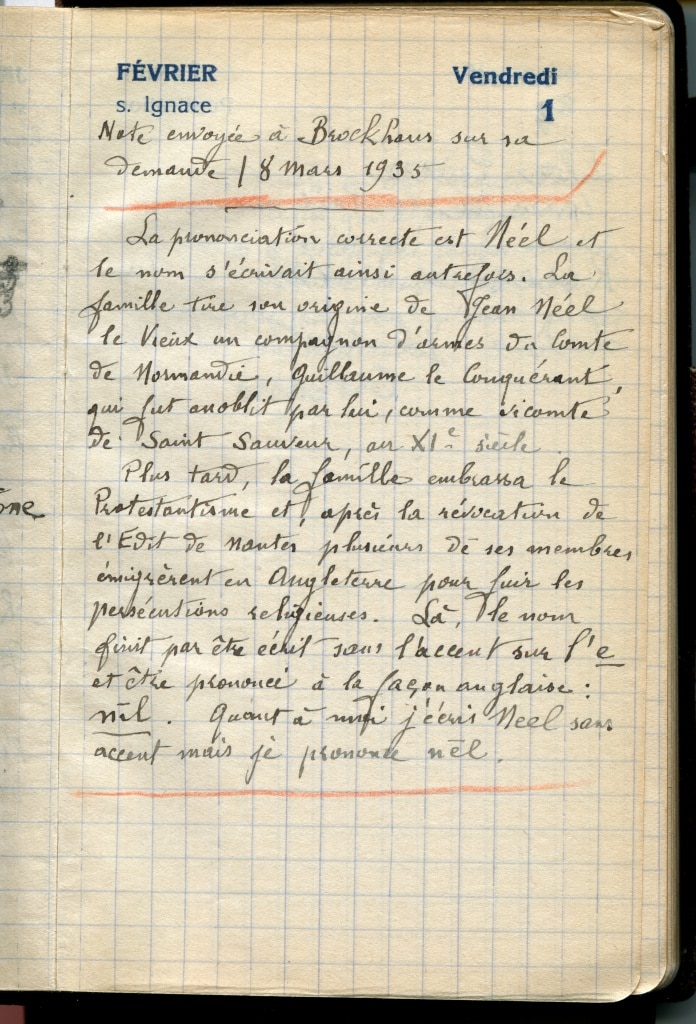 FÉVRIER Vendredi
s. Ignace 1
Note envoyée à Brockhaus sur sa
demande / 8 Mars 1935
La prononciation correcte est Néél et
le nom s'écrivait ainsi autrefois. La
famille tire son origine de Jean Néél
le Vieux un compagnon d'armes du Comte
de Normandie, Guillaume le Conquérant,
qui fut anoblit par lui, comme vicomte
de Saint Sauveur, au XIe siècle
Plus tard, la famille embrassa le
Protestantisme et, après la révocation de
l'Edit de Nantes plusieurs de ses membres
émigrèrent en Angleterre pour fuir les
persécutions religieuses. Là, le nom
finit par être écrit sans l'accent sur l'e
et être prononcé à la façon anglaise :
nēl. Quant à moi j'écris Neel sans
accent mais je prononce nēl.